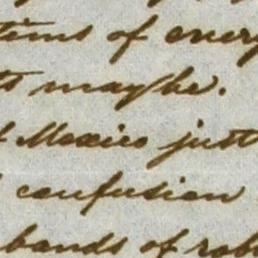 of every
maybe.
Mexico just
confusion
bands of rob